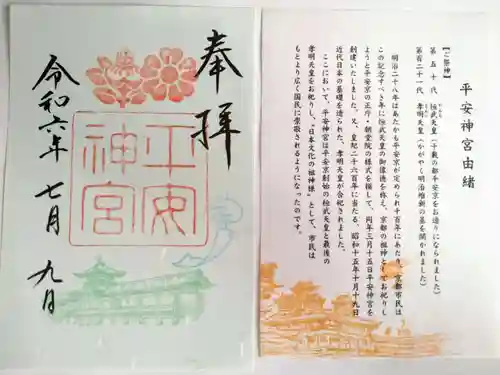 奉拝
平安
神宮
令和六年 七月 九日
平安神宮由緒
【ご祭神】
第五十代 桓武天皇（千載の都平安京をお造りになられました）
第百二十一代 孝明天皇（かがやく明治維新の基を開かれました）
明治二十八年はあたかも平安京が定められ千百年にあたり、京都市民は
この記念すべき年に桓武天皇の御偉徳を称え、京都の祖神としてお祀りし
ようと平安京の正庁、朝堂院の様式を模して、同年三月十五日平安神宮を
創建いたしました。又、皇紀二千六百年に当たる、昭和十五年十月十九日
近代日本の基礎を造られた、孝明天皇が合祀されました。
ここにおいて、平安神宮は平安京創始の桓武天皇と最後の
孝明天皇をお祀りし、"日本文化の祖神様"として、市民は
もとより広く国民に崇敬されるようになったのです。